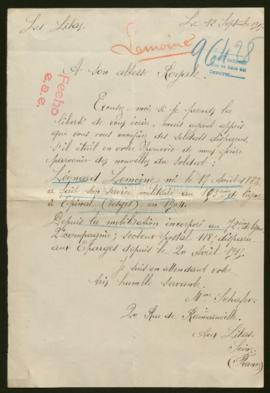 Les Lilas, Le 12 Septembre
Lemoine
96428
Fecho
e.a.e.
A son altesse Royale.
Excusez moi si je prends la
liberté de vous écrire, ayant appris
que vous vous occupiez des soldats disparus
S'il était en votre Pouvoir de me faire
parvenir des nouvelles du soldat:
Léonard Lemoine né le 17
a fait son service militaire au
à Epinal (Vosges) en 1904.
Depuis la mobilisation incorporé au
2e compagnie, secteur postal 118 disparu
aux Eparges depuis le 20 Avril
Je suis en attendant votre
très humble servante.
Mme
20 Rue de Romainville
Aux Lilas
Seine
(France)